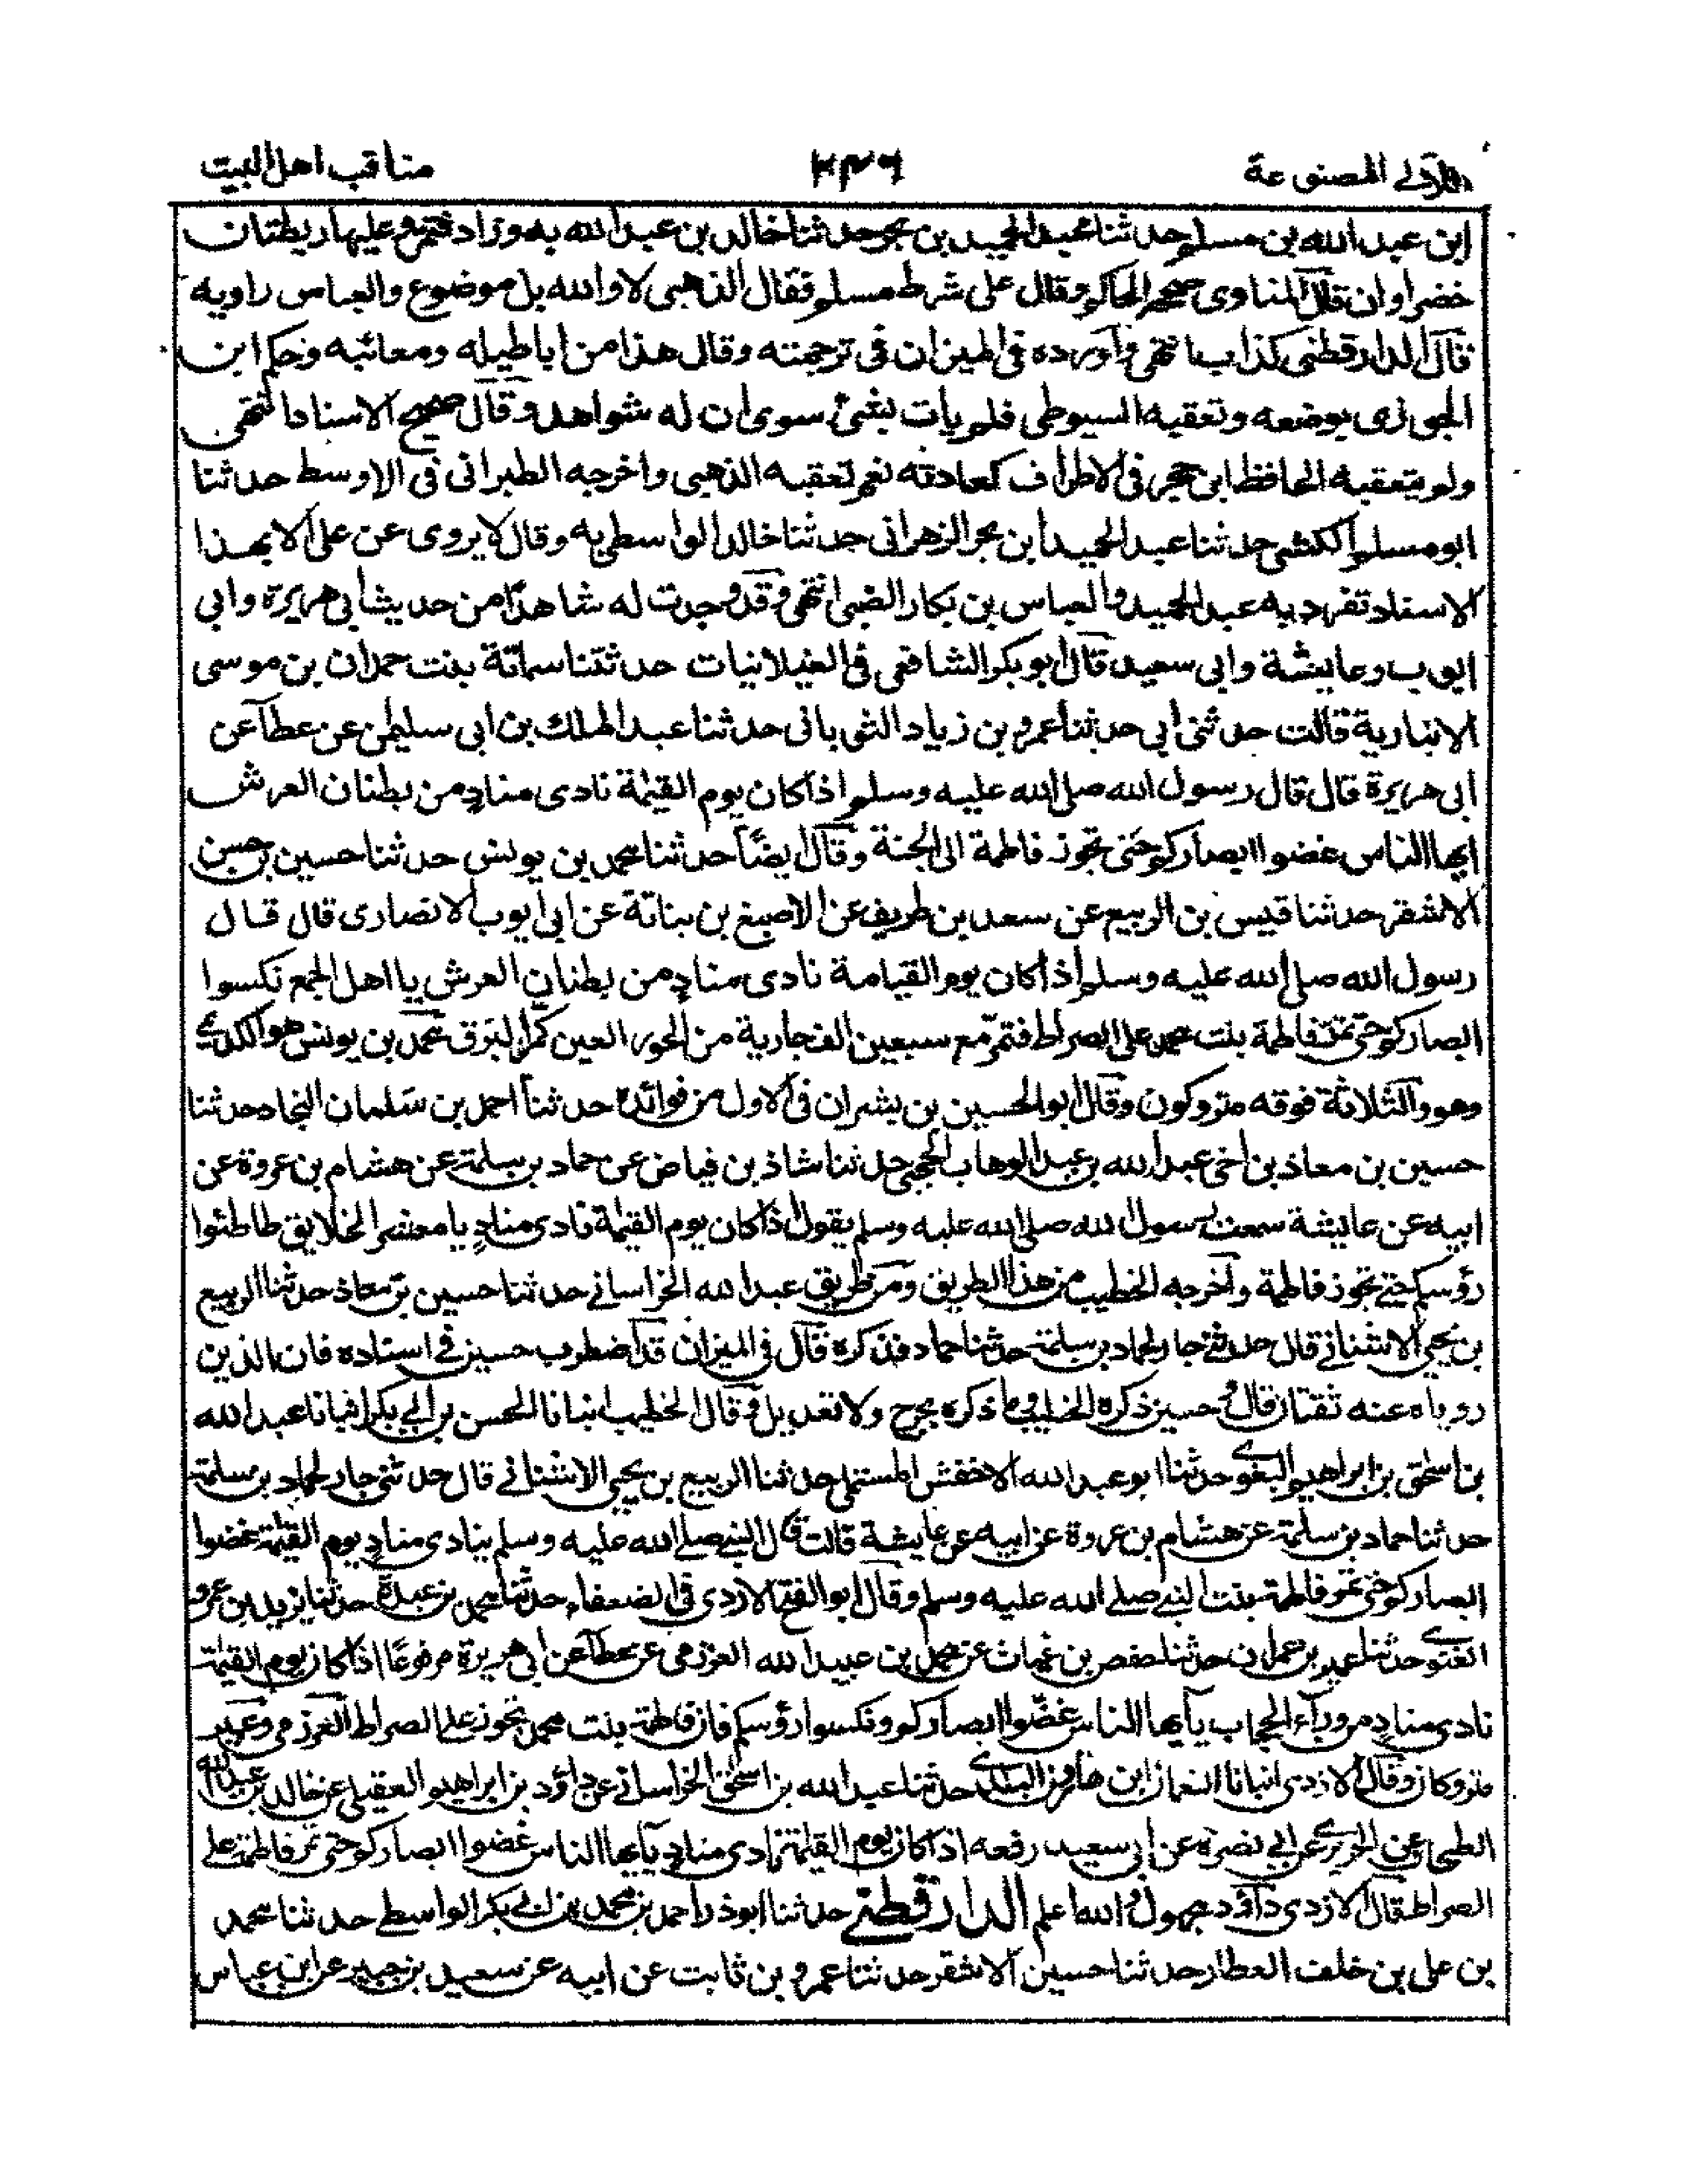 اللآلي المصنوعة ٢٣٦ مناقب اهل البيت
ابن عبد الله بن مسلم حدثنا عبد الحميد بن بحر حدثنا خالد بن عبد الله به وزاد فتمر وعليها ريطتان
خضراوان قال المناوى صححه الحاكم وقال على شرط مسلم فقال الذهبى لا والله بل موضوع والعباس راويه
قال الدارقطنى كذاب انتهى وأورده فى الميزان فى ترجمته وقال هذا من اباطيله ومعائبه وحكم ابن
الجوزى بوضعه وتعقبه السيوطى فلم يات بشئ سوى ان له شواهد وقال صحيح الاسناد انتهى
ولم يتعقبه الحافظ ابن حجر فى الاطراف كعادته نعم تعقبه الذهبى واخرجه الطبرانى فى الاوسط حدثنا
ابو مسلم الكشى حدثنا عبد الحميد بن بحر الزهرانى حدثنا خالد الواسطى به وقال لا يروى عن على الا بهذا
الاسناد تفرد به عبد الحميد والعباس بن بكار الضبى انتهى وقد وجدت له شاهدًا من حديث ابى هريرة وابى
ايوب وعايشة وابى سعيد قال ابو بكر الشافعى فى الغيلانيات حدثتنا سمانة بنت حمدان بن موسى
الانبارية قالت حدثنى أبى حدثنا عمرو بن زياد الثوبانى حدثنا عبد الملك بن ابى سليمٰن عن عطآ عن
ابى هريرة قال قال رسول الله صلى الله عليه وسلم اذا كان يوم القيٰمة نادى منادٍ من بطنان العرش
ايها الناس غضوا ابصاركم حتى تجوز فاطمة الى الجنة وقال ايضًا حدثنا محمد بن يونس حدثنا حسين بن حسن
الاشقر حدثنا قيس بن الربيع عن سعد بن طريف عن الاصبغ بن نباتة عن ابى أيوب الانصارى قال قال
رسول الله صلى الله عليه وسلم اذا كان يوم القيامة نادى منادٍ من بطنان العرش يا اهل الجمع نكسوا
ابصاركم حتى تمر فاطمة بنت محمد على الصراط فتمرّ مع سبعين الف جارية من الحور العين كمرّ البَرق محمد بن يونس هو الكديمي
وهو والثلاثة فوقه متروكون وقال ابو الحسين بن بشران فى الاول من فوائده حدثنا احمد بن سَلمان النجاد حدثنا
حسين بن معاذ بن اخى عبد الله بن عبد الوهاب الحجبى حدثنا شاذ بن فياض عن حماد بن سلمة عن هشام بن عروة عن
ابيه عن عايشة سمعت رسول الله صلى الله عليه وسلم يقول اذا كان يوم القيٰمة نادى منادٍ يا معشر الخلايق طاطئوا
رؤسكم حتى تجوز فاطمة وآخرجه الخطيب من هذا الطريق ومن طريق عبد الله الخراسانى حدثنا حسين بن معاذ حدثنا الربيع
بن يحيى الاشنانى قال حدثنى جار لحماد بن سلمة حدثنا حماد فذكره قال فى الميزان قد اضطرب حسين فى اسناده فان الذين
روياه عنه ثقتان قال وحسين ذكره الخطيب وما ذكره بجرح ولا تعديل وقال الخطيب انبانا الحسن بن ابى بكر انبانا عبد الله
بن اسحٰق بن ابراهيم البغوى حدثنا ابو عبد الله الاخفش المستملى حدثنا الربيع بن يحيى الاشنانى قال حدثنى جار لحماد بن سلمة
حدثنا حماد بن سلمة عن هشام بن عروة عن ابيه عن عايشة قالت قال النبى صلى الله عليه وسلم ينادى منادٍ يوم القيٰمة غضوا
ابصاركم حتى تمر فاطمة بنت النبى صلى الله عليه وسلم وقال ابو الفتح الازدى فى الضعفاء حدثنا محمد بن عبدة حدثنا يزيد بن عمرو
الغنوى حدثنا عمير بن عمران حدثنا حفص بن غياث عن محمد بن عبيد الله العرزمى عن عطآ عن ابى هريرة مرفوعًا اذا كان يوم القيٰمة
نادى منادٍ من ورآء الحجاب يآيها الناس غضّوا ابصاركم ونكسوا رؤسكم فان فاطمة بنت محمد تجوز على الصراط العرزمى وعمير
متروكان وقال الازدى انبانا النعمان ابن هارون البلدى حدثنا عبد الله بن اسحٰق الخراسانى عن داؤد بن ابراهيم العقيلى عن خالد بن عبد الله
الطحان عن الجريرى عن ابى نضرة عن ابى سعيد رفعه اذا كان يوم القيٰمة نادى منادٍ يآيها الناس غضوا ابصاركم حتى تمر فاطمة على
الصراط قال الازدى داؤد مجهول والله اعلم الدارقطنى حدثنا ابو ذر احمد بن محمد بن ابى بكر الواسطى حدثنا محمد
بن على بن خلف العطار حدثنا حسين الاشقر حدثنا عمرو بن ثابت عن ابيه عن سعيد بن جبير عن ابن عباس